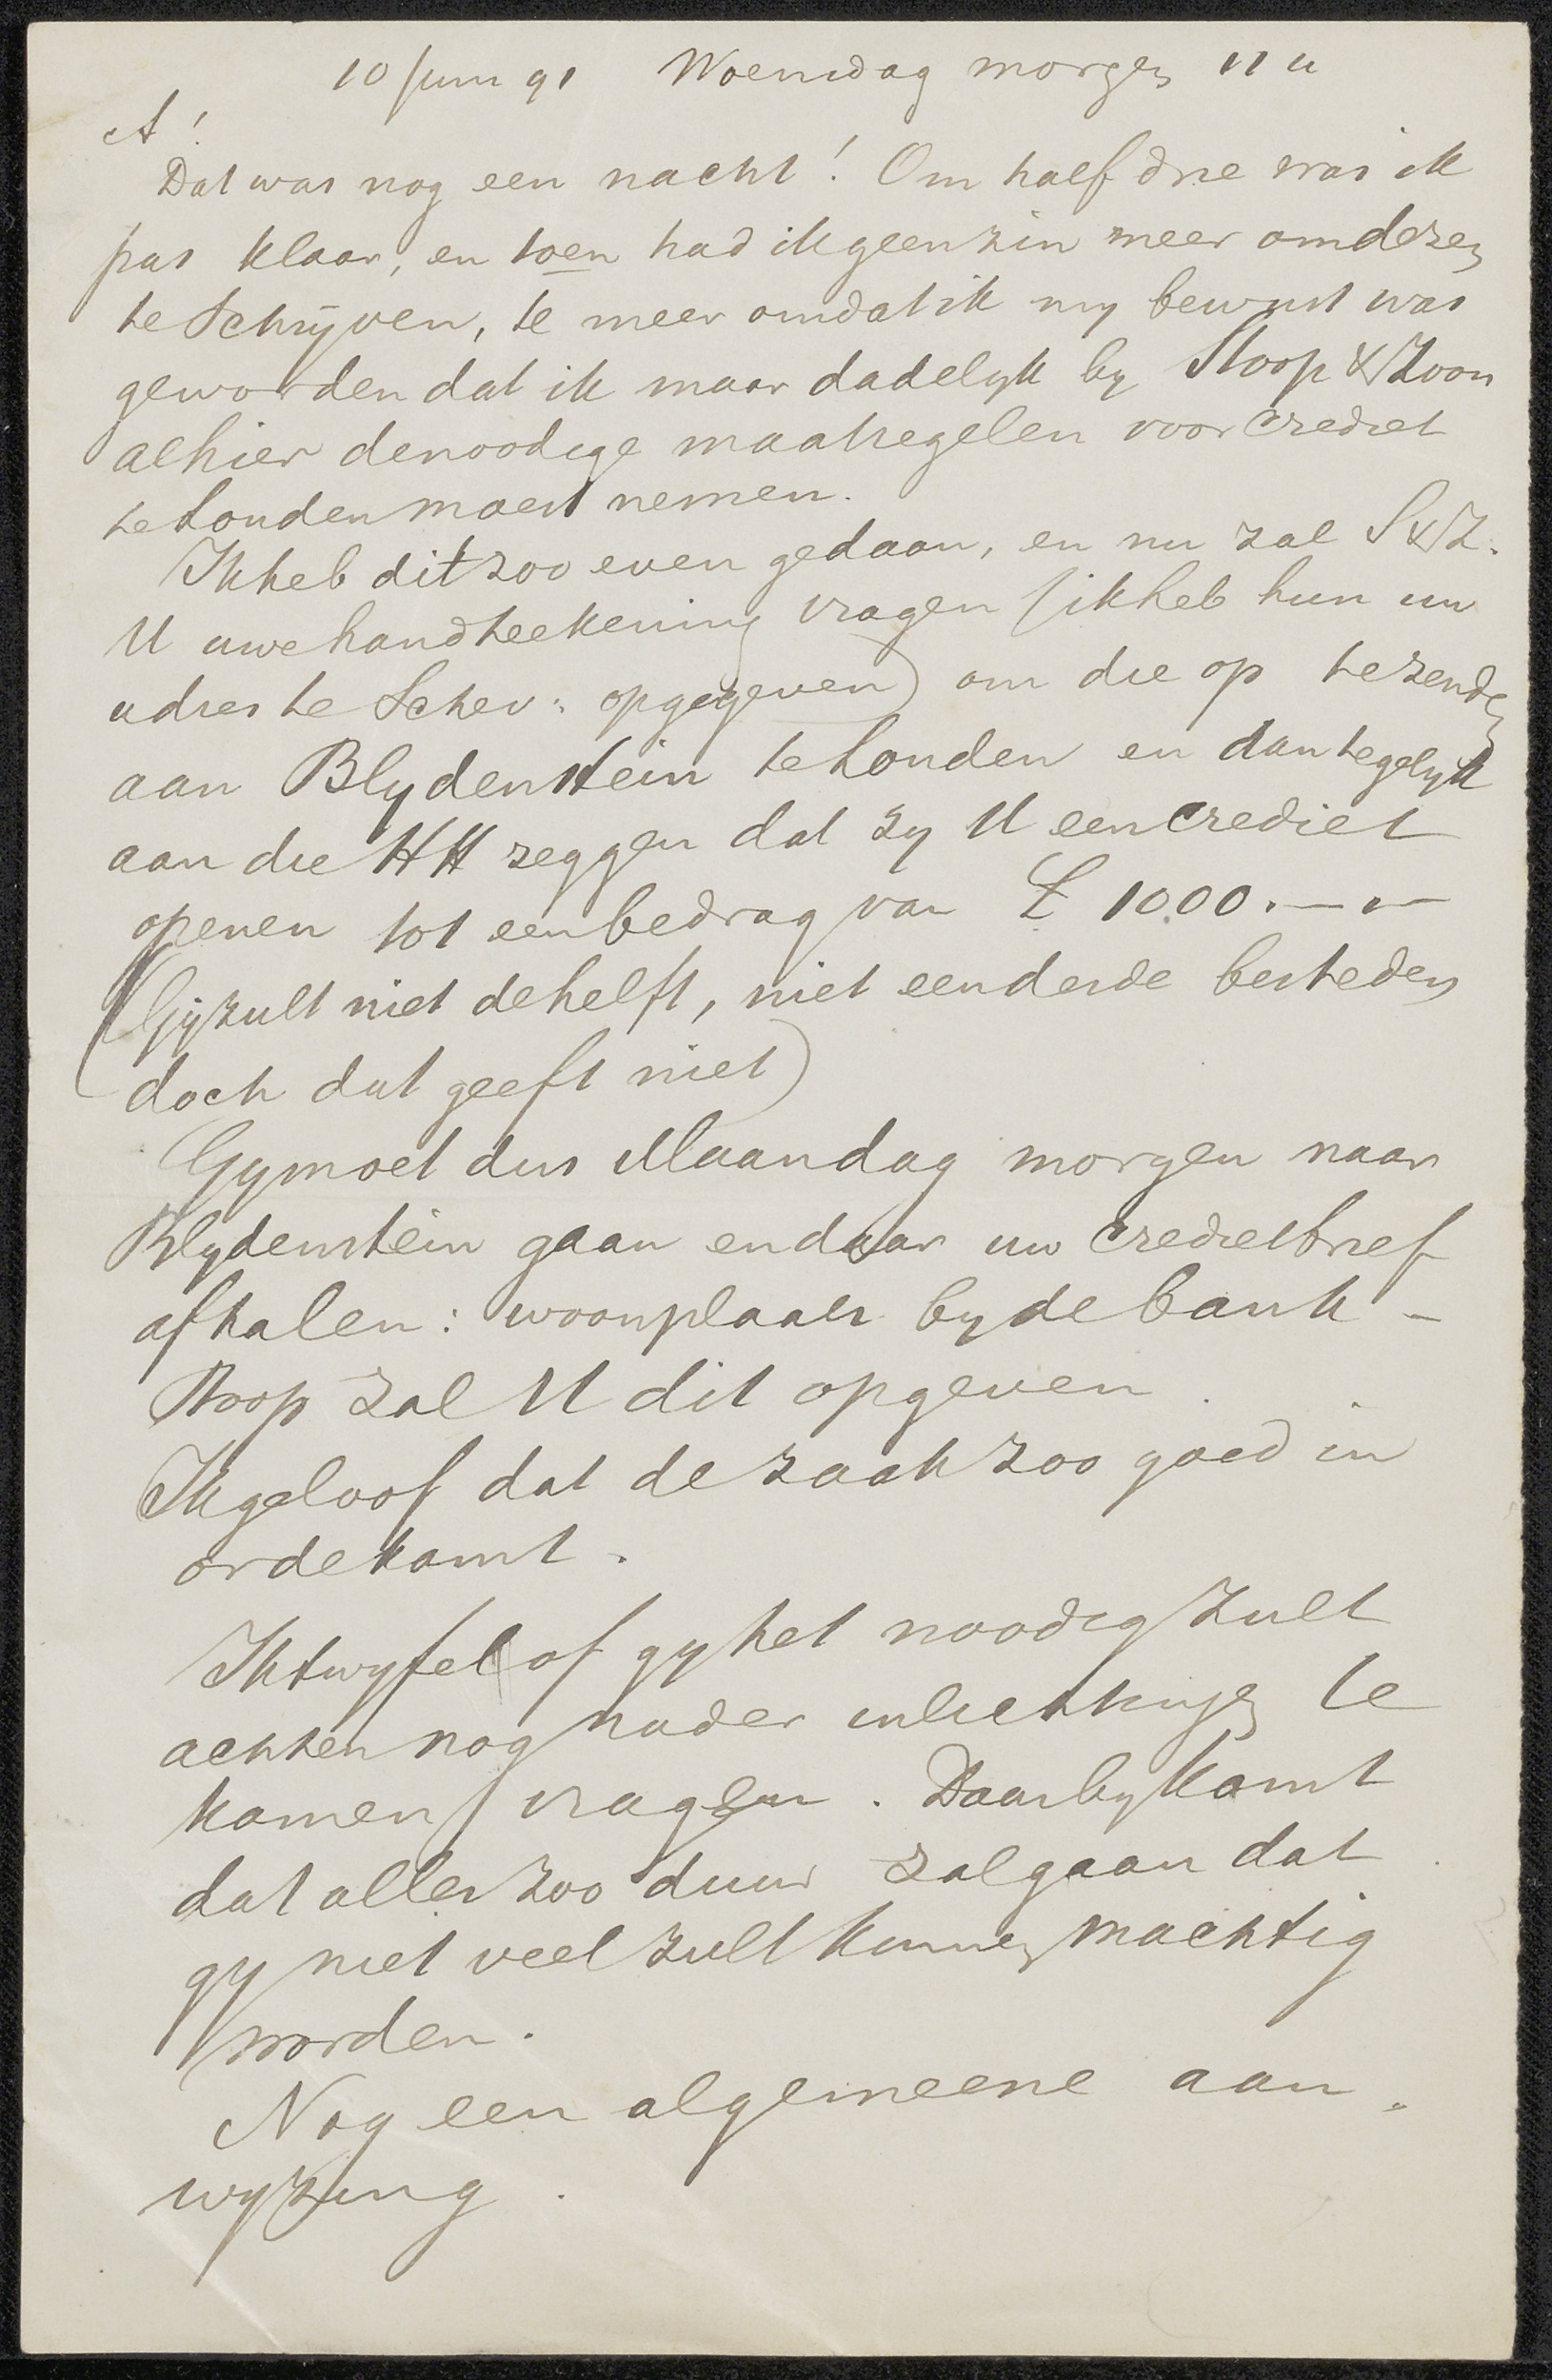 10 Juni 91 Woensdag morgen 11 u
A!
Dat was nog een nacht! Om half drie was ik
pas klaar, en toen had ik geen zin meer om dezen
te schrijven, te meer omdat ik my bewust was
geworden dat ik maar dadelyk by Stoop & Zoon
alhier de noodige maatregelen voor crediet
te Londen moest nemen.
Ik heb dit zoo even gedaan, en nu zal S & Z.
U uwe handteekening vragen (ik heb hun uw
adres te Schev: opgegeven) om die op te zenden
aan Blydenstein te Londen en dan tegelyk
aan die HH zeggen dat zy U een crediet
openen tot een bedrag van £ 1000.—.—
(Gij zult niet de helft, niet een derde besteden
doch dat geeft niet)
Gy moet dus Maandag morgen naar
Blydenstein gaan en daar uw credietbrief
afhalen: woonplaats by de bank –
Stoop zal U dit opgeven.
Ik geloof dat de zaak zoo goed in
orde komt.
Ik twyfel of gy het noodig zult
achten nog nader inlichtingen te
komen vragen. Daarby komt
dat alles zoo duur zal gaan dat
gy niet veel zult kunnen machtig
worden.
Nog een algemeene aan-
wyzing.